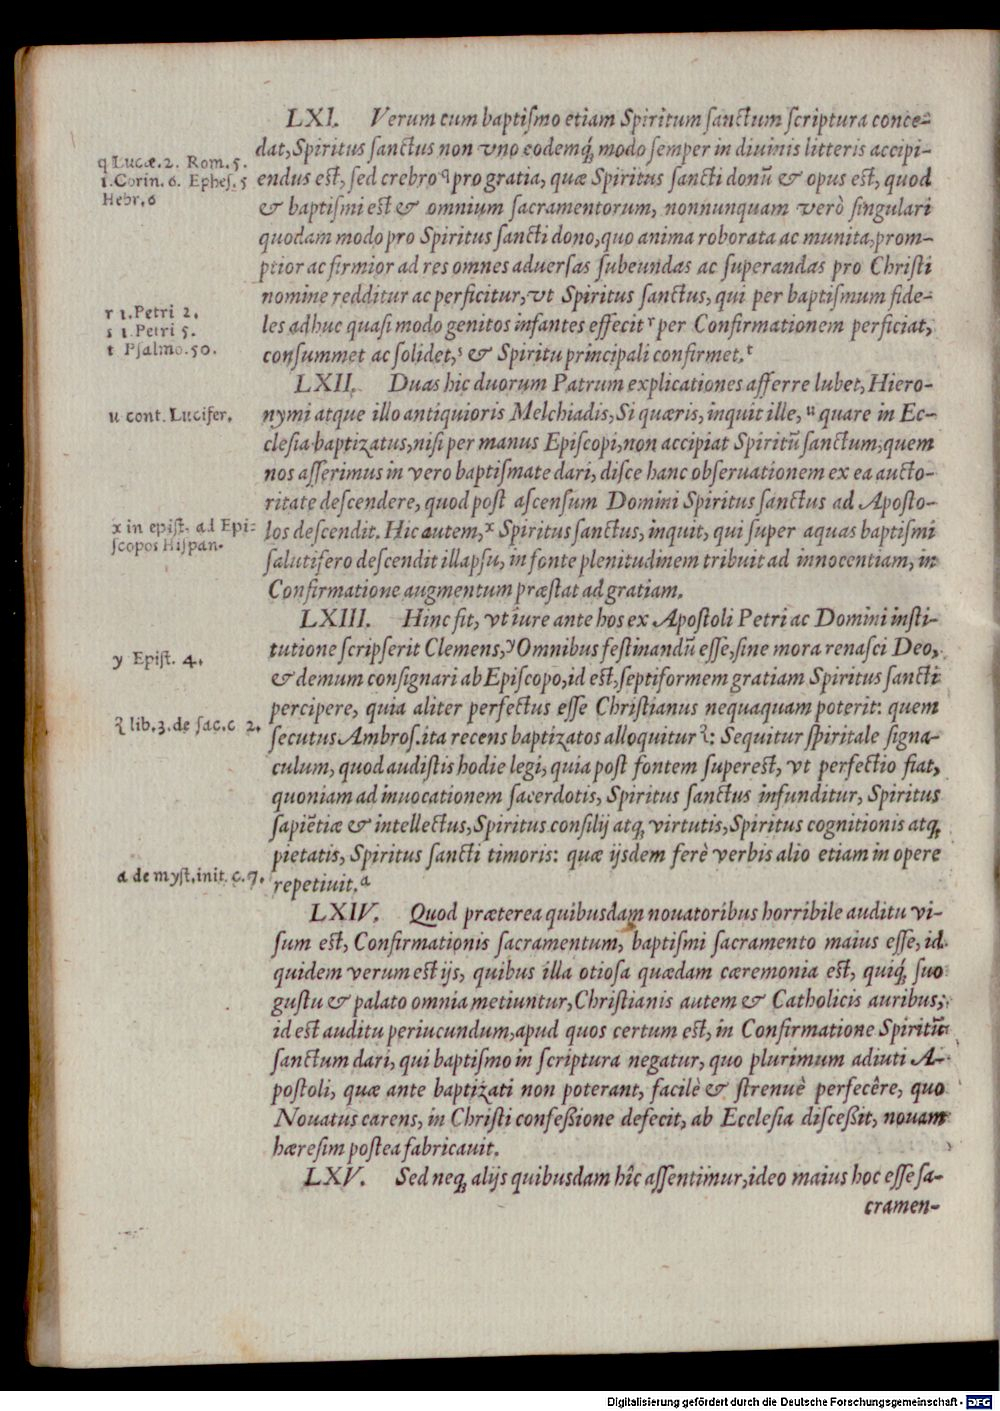 LXI. Verum cum baptiſmo etiam Spiritum ſanctum ſcriptura conce-
dat, Spiritus ſanctus non vno eodemq́; modo ſemper in diuinis litteris accipi-
q Lucæ. 2. Rom. 5.
1. Corin. 6. Epheſ. 5
Hebr. 6
endus est, ſed crebro q pro gratia, quæ Spiritus ſancti donũ & opus est, quod
& baptiſmi est & omnium ſacramentorum, nonnunquam verò ſingulari
quodam modo pro Spiritus ſancti dono, quo anima roborata ac munita, prom-
ptior ac firmior ad res omnes aduerſas ſubeundas ac ſuperandas pro Chriſti
nomine redditur ac perficitur, vt Spiritus ſanctus, qui per baptiſmum fide-
r 1. Petri 2.
s 1. Petri 5.
t Pſalmo. 50.
les adhuc quaſi modo genitos infantes effecit r per Confirmationem perficiat,
conſummet ac ſolidet, s & Spiritu principali confirmet. t
LXII. Duas hic duorum Patrum explicationes afferre lubet, Hiero-
u cont. Lucifer.
nymi atque illo antiquioris Melchiadis, Si quæris, inquit ille, u quare in Ec-
cleſia baptizatus, niſi per manus Epiſcopi, non accipiat Spiritũ ſanctum, quem
nos aſſerimus in vero baptiſmate dari, diſce hanc obſeruationem ex ea aucto-
ritate deſcendere, quod poſt aſcenſum Domini Spiritus ſanctus ad Apoſto-
x in epiſt. ad Epi-
ſcopos Hiſpan.
los deſcendit. Hic autem, x Spiritus ſanctus, inquit, qui ſuper aquas baptiſmi
ſalutifero deſcendit illapſu, in fonte plenitudinem tribuit ad innocentiam, in
Confirmatione augmentum præſtat ad gratiam.
LXIII. Hinc fit, vt iure ante hos ex Apoſtoli Petri ac Domini inſti-
y Epiſt. 4.
tutione ſcripſerit Clemens, y Omnibus feſtinandũ eſſe, ſine mora renaſci Deo,
& demum conſignari ab Epiſcopo, id eſt, ſeptiformem gratiam Spiritus ſancti
percipere, quia aliter perfectus eſſe Chriſtianus nequaquam poterit: quem
z lib. 3. de ſac. c 2.
ſecutus Ambroſ. ita recens baptizatos alloquitur z: Sequitur ſpiritale ſigna-
culum, quod audiſtis hodie legi, quia poſt fontem ſupereſt, vt perfectio fiat,
quoniam ad inuocationem ſacerdotis, Spiritus ſanctus infunditur, Spiritus
ſapiẽtiæ & intellectus, Spiritus conſilij atq; virtutis, Spiritus cognitionis atq;
pietatis, Spiritus ſancti timoris: quæ ijsdem ferè verbis alio etiam in opere
a de myſt. init. c. 7.
repetiuit. a
LXIV. Quod præterea quibusdam nouatoribus horribile auditu vi-
ſum eſt, Confirmationis ſacramentum, baptiſmi ſacramento maius eſſe, id
quidem verum eſt ijs, quibus illa otioſa quædam cæremonia eſt, quiq́; ſuo
guſtu & palato omnia metiuntur, Chriſtianis autem & Catholicis auribus,
id eſt auditu periucundum, apud quos certum eſt, in Confirmatione Spiritũ
ſanctum dari, qui baptiſmo in ſcriptura negatur, quo plurimum adiuti A-
poſtoli, quæ ante baptizati non poterant, facilè & ſtrenuè perfecêre, quo
Nouatus carens, in Chriſti confeßione defecit, ab Eccleſia diſceßit, nouam
hæreſim poſtea fabricauit.
LXV. Sed neq; alijs quibusdam hîc aſſentimur, ideo maius hoc eſſe ſa-
cramen-
Digitalisierung gefördert durch die Deutsche Forschungsgemeinschaft - DFG